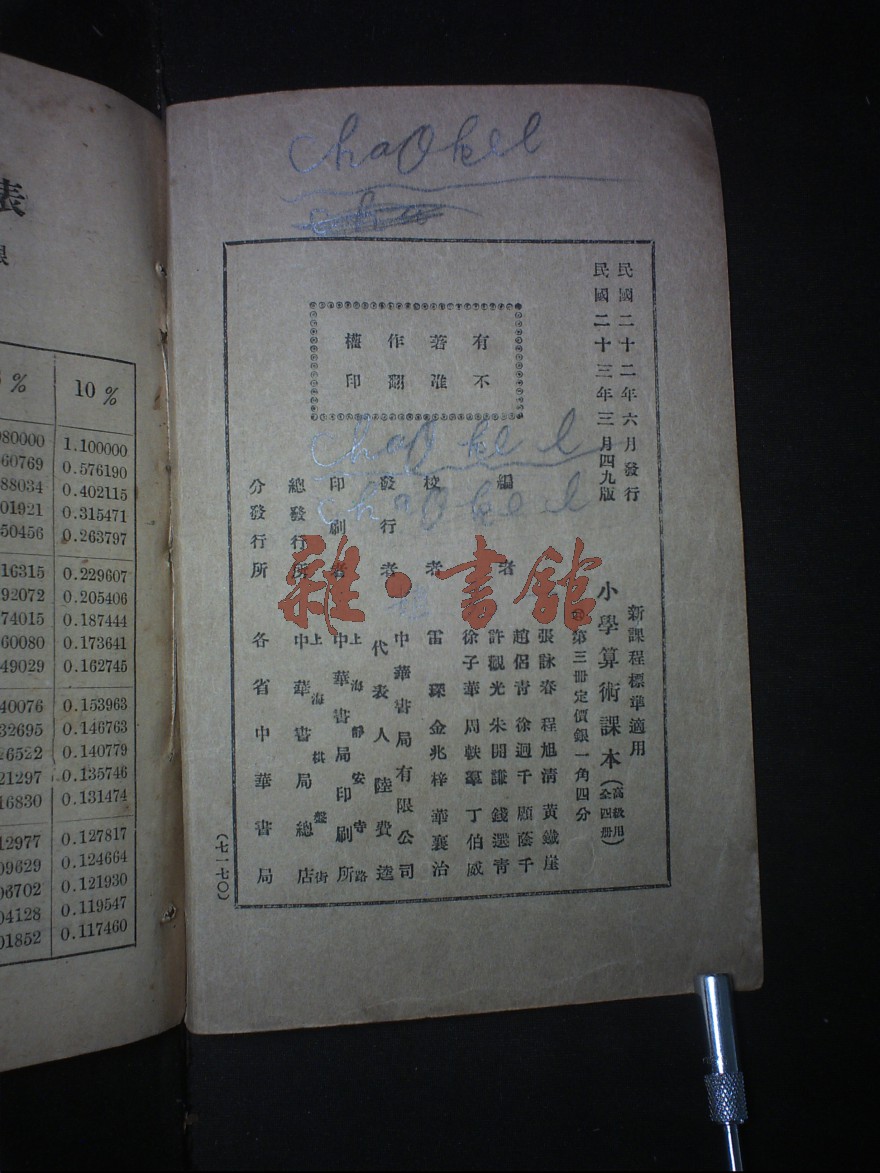 表
%
10 %
980000
1.100000
60769
0.576190
88034
0.402115
01921
0.315471
50456
0.263797
16315
0.229607
92072
0.205406
74015
0.187444
60080
0.173641
49029
0.162745
40076
0.153963
32695
0.146763
26522
0.140779
21297
0.135746
16830
0.131474
12977
0.127817
09629
0.124664
06702
0.121930
04128
0.119547
01852
0.117460
chaOkel
cha
民國二十二年六月發行
民國二十三年三月四九版
有著作權
不准翻印
chaOkel
chaOkel
新課程標準適用
小學算術課本(高級用全四冊)
第三冊定價銀一角四分
編者
張詠春 程旭清 黃鐵崖
趙侶青 徐迥千 顧蔭千
許觀光 朱開謙 錢選青
徐子華 周軼羣 丁伯威
校者
雷琛 金兆梓 華襄治
發行者
中華書局有限公司
代表人 陸費逵
印刷者
上海靜安寺路
中華書局印刷所
總發行所
上海棋盤街
中華書局總店
分發行所
各省中華書局
(七一七〇)
雜·書館